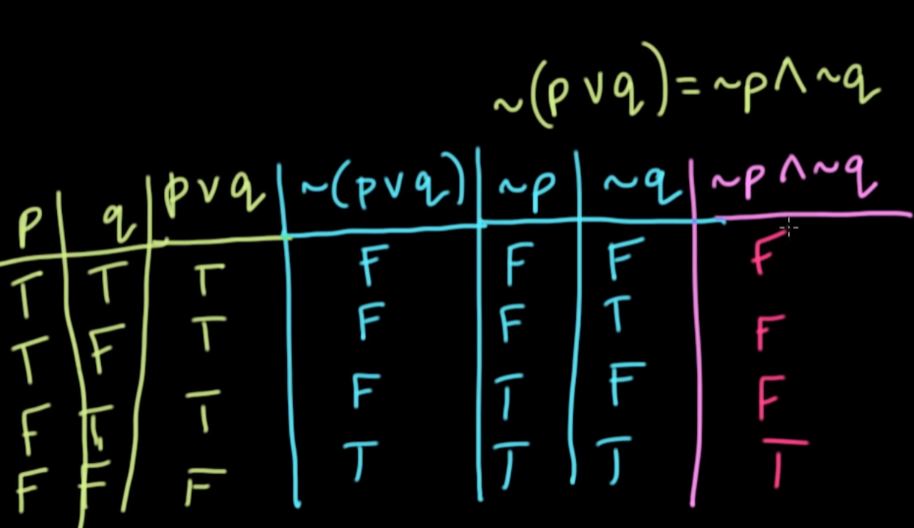 ~(p ∨ q) = ~p ∧ ~q
p q p ∨ q ~(p ∨ q) ~p ~q ~p ∧ ~q
T T T F F F F
T F T F F T F
F T T F T F F
F F F T T T T